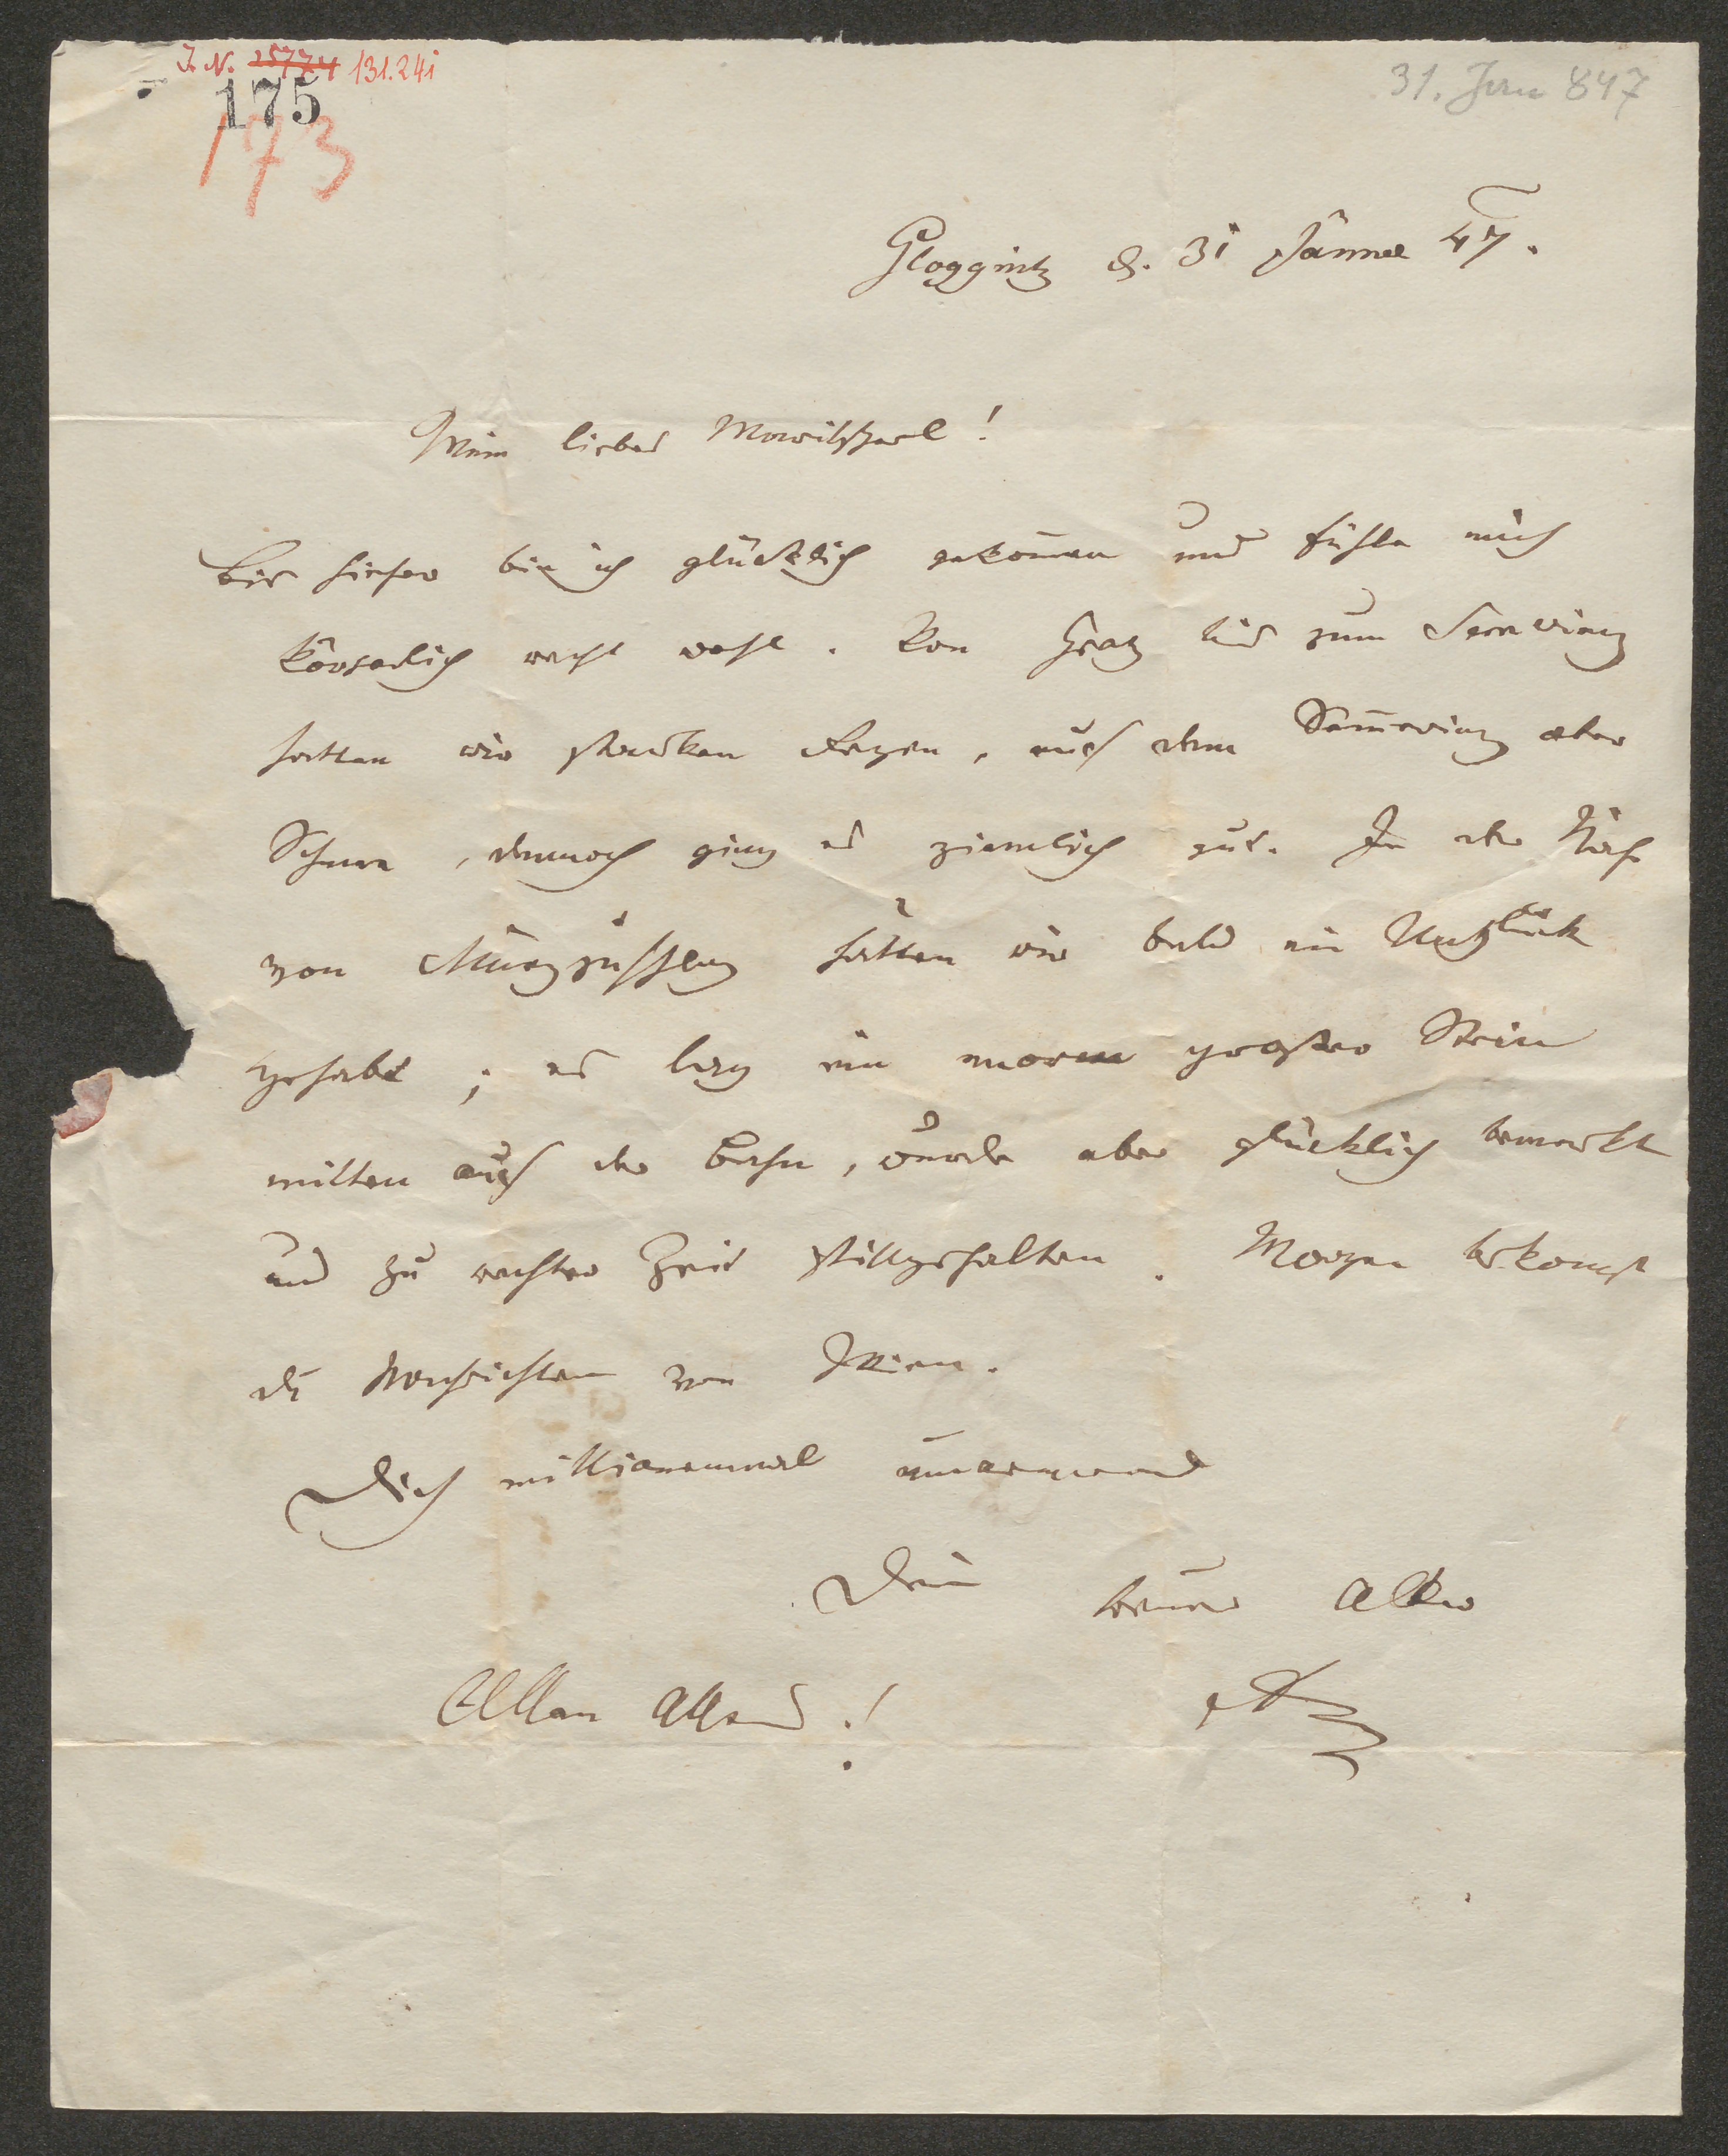 J. N. 25774 131.241
175
173
31. Jän 847
Gloggnitz d. 31 Jänner 47.
Mein liebes Moritzherl!
Bis hieher bin ich glücklich gekom̄en und fühle mich
körperlich recht wohl. Von Gratz bis zum Semering
hatten wir starken Regen, auf dem Sem̄ering aber
Schnee, dennoch ging es ziemlich gut. In der Nähe
von Mürzzuschlag hätten wir bald ein Unglück
gehabt; es lag ein enorm großer Stein
mitten auf der Bahn, wurde aber glücklich bemerkt
und zu rechter Zeit stillgehalten. Morgen bekomst
du Nachrichten von Wien.
Dich millionenmal umarmend
Dein treuer Alter
Allen Alles!